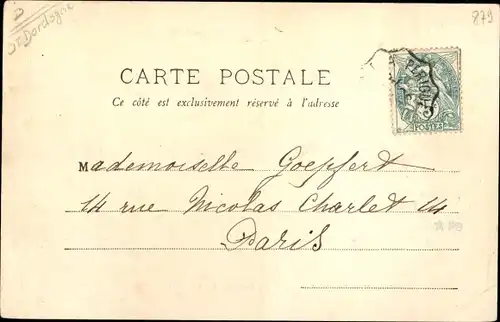 D
Dordogne
879
CARTE POSTALE
Ce côté est exclusivement réservé à l'adresse
POSTES
Mademoiselle Goepfert
14 rue Nicolas Charlet 14
Paris